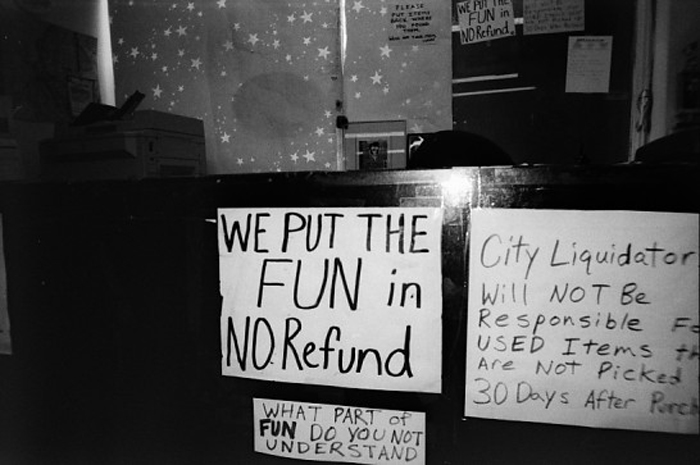 PLEASE
PUT ITEMS
BACK WHERE
YOU FOUND
THEM.
WE PUT THE
FUN in
NO Refund.
WE PUT THE
FUN in
NO Refund
WHAT PART of
FUN DO YOU NOT
UNDERSTAND
City Liquidator
Will NOT Be
Responsible
USED Items
Are Not Picked
30 Days After